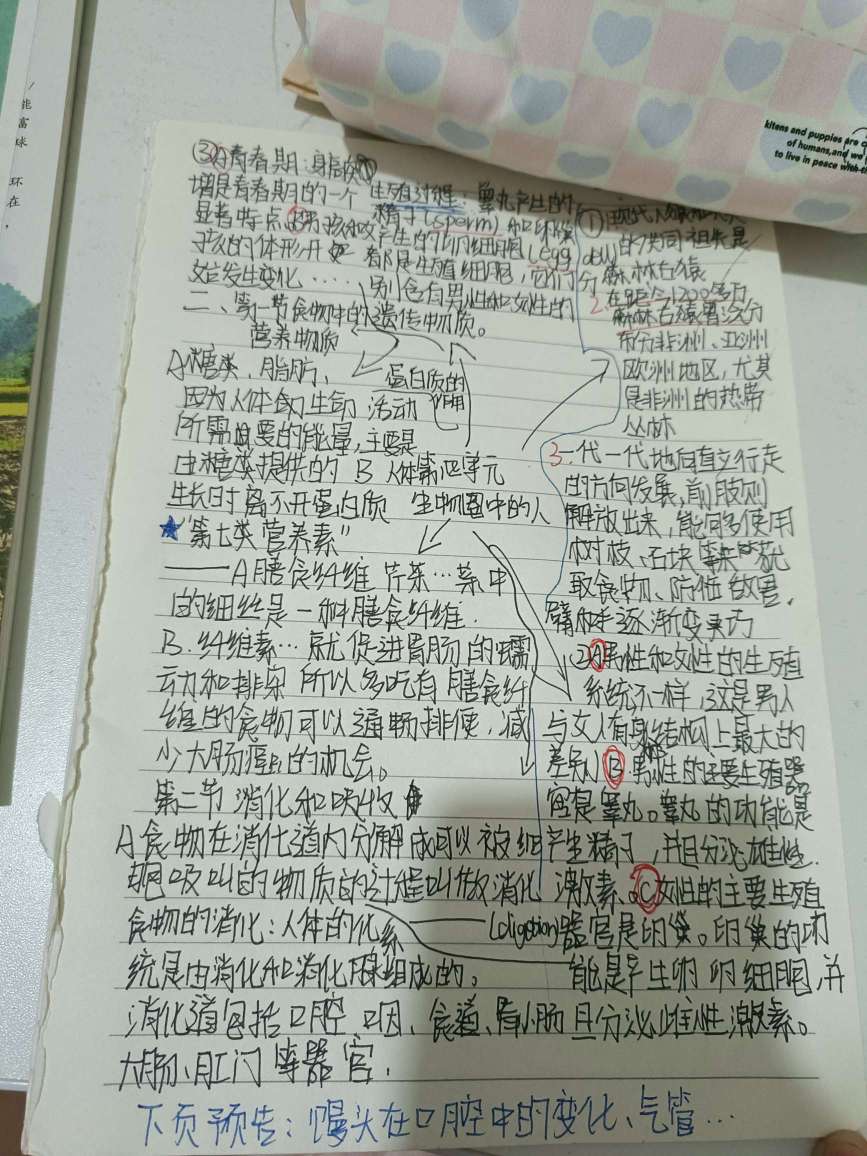 能
富
球
环
在
kittens and puppies are
of humans,and we
to live in peace with
③A青春期:身高
增是青春期的一个
显著特点
孩的体形开
始发生变化……
生殖过程:睾丸产生的
精子(sperm)和卵巢
产生的卵细胞(egg
都是生殖细胞,它们分
别含有男性和女性的
遗传物质。
二、第一节食物中的
营养物质
A糖类、脂肪、
蛋白质的
作用
因为人体的生命活动
所需要的能量,主要是
由糖类提供的 B 人体
生长时离不开蛋白质
第四单元
生物圈中的人
★"第七类营养素"
——A膳食纤维 芹菜…菜中
的细丝是一种膳食纤维.
B.纤维素…就促进胃肠的蠕
动和排空 所以多吃有膳食纤
维的食物可以通畅排便,减
少大肠癌的机会。
第二节 消化和吸收
A食物在消化道内分解成可以被细
胞吸收的物质的过程叫做消化
(digetion)
食物的消化:人体的化系
统是由消化和消化腺组成的。
消化道包括口腔、咽、食道、胃小肠
大肠、肛门等器官.
①现代
的共同祖先是
森林古猿
2.在距今1200多万
森林古猿曾广泛分
布分非洲、亚洲
欧洲地区,尤其
是非洲的热带
丛林
3.一代一代地向直立行走
的方向发展,前肢则
解放出来,能使用
树枝、石块等来获
取食物、防御敌害,
臂和手逐渐变灵巧
②A男性和女性的生殖
系统不一样,这是男人
与女人有身体结构上最大的
差别 B.男性的主要生殖器
官是睾丸。睾丸的功能是
产生精子,并且分泌雄性.
激素。C女性的主要生殖
器官是卵巢。卵巢的功
能是产生卵 卵细胞,并
且分泌雌性激素。
下页预告:馒头在口腔中的变化、气管…